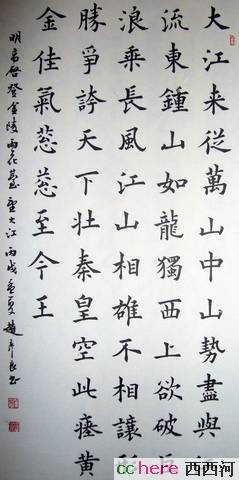 大江来從萬山中山勢盡與江
流東鍾山如龍獨西上欲破巨
浪乘長風江山相雄不相讓形
勝爭誇天下壯秦皇空此瘞黃
金佳氣葱葱至今王
明高啓登金陵雨花臺望大江 丙戌孟夏 趙彥良書
cchere 西西河